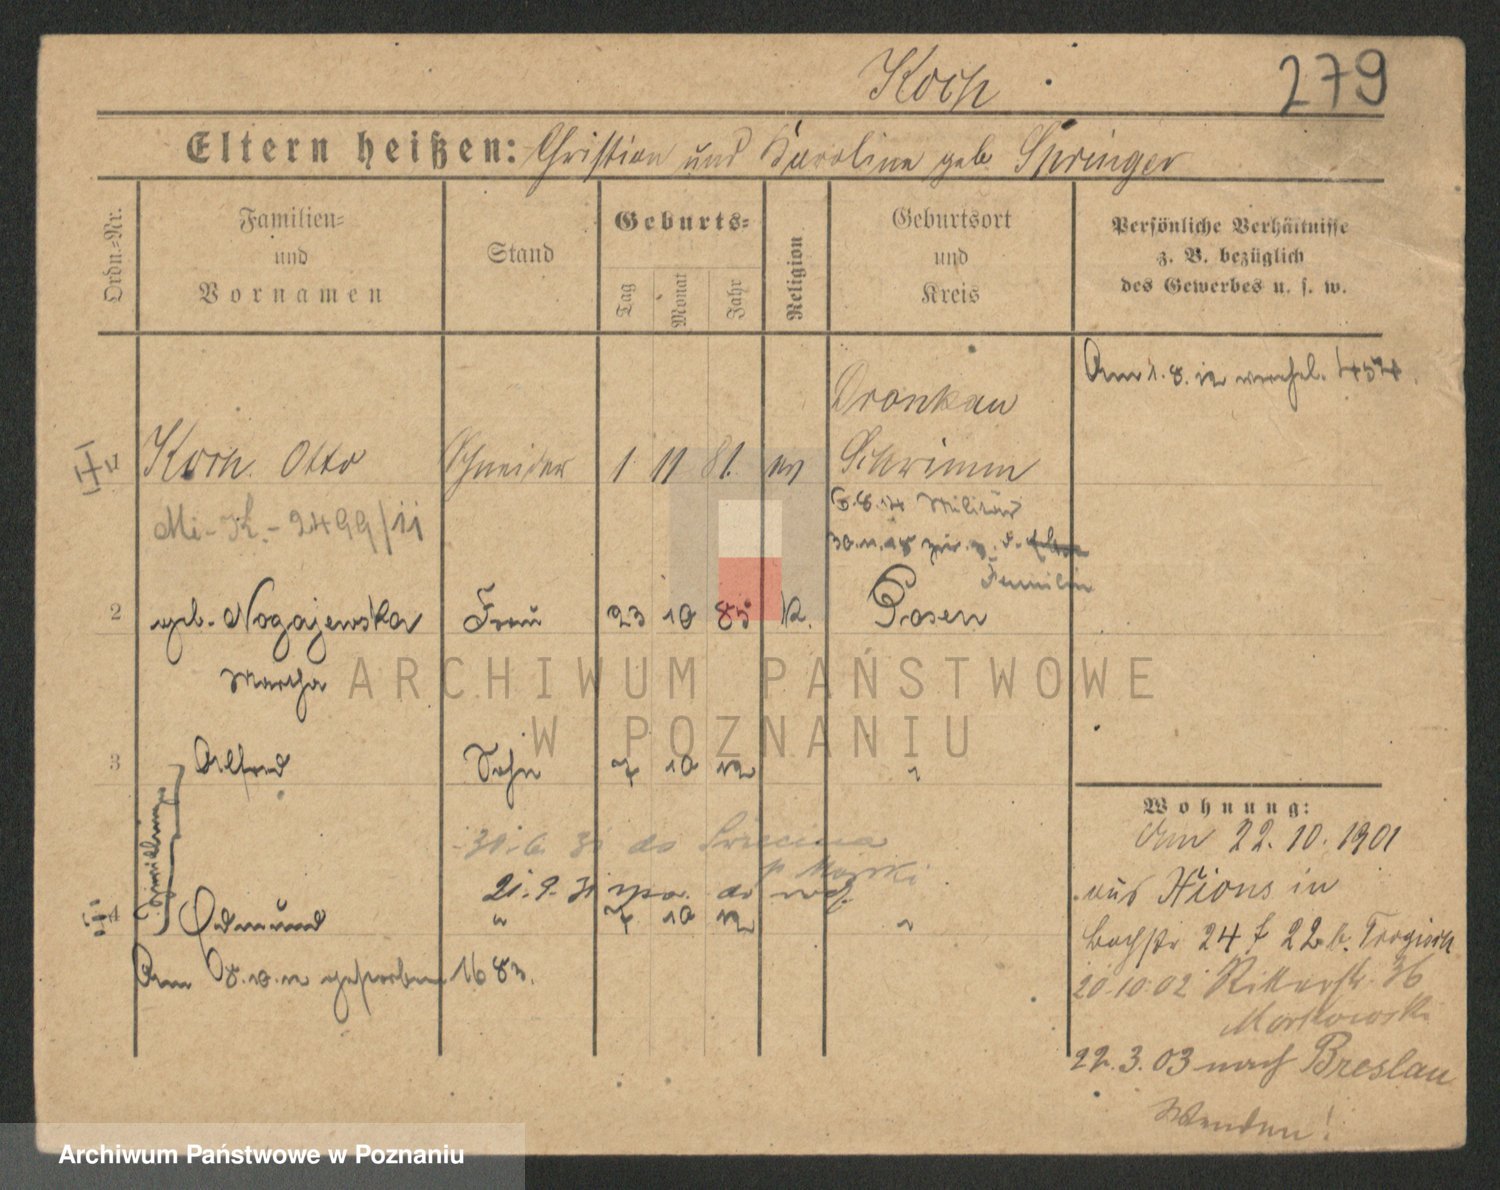 Koch 279
Eltern heißen: Christian und Karoline geb. Springer
Ordn.=Nr. Familien= und Vornamen Stand Geburts= Tag Monat Jahr Religion Geburtsort und Kreis Persönliche Verhältnisse z. B. bezüglich des Gewerbes u. s. w.
Am 1.8.12
Dronkau
Koch Otto Schneider 1 11 81. ev Schrimm
Mi-K.-2499/11
6.8.14 Militär
30.11.18 zur. z. d.
Familie
2 geb. Nogajewska Frau 23 10 85 k. Posen
Martha
3 Alfred Sohn 7 10 12 "
Zwillinge
30.6.31 do
21.9.31
4 Edmund " 7 10 12 "
Am 8.10.12 gestorben 1683.
Wohnung:
Am 22.10.1901
aus Xions in
Bachstr 24 f 22 b.
20.10.02 Ritterstr. 36
Markowski
22.3.03 nach Breslau
Wenden!
ARCHIWUM PAŃSTWOWE
W POZNANIU
Archiwum Państwowe w Poznaniu